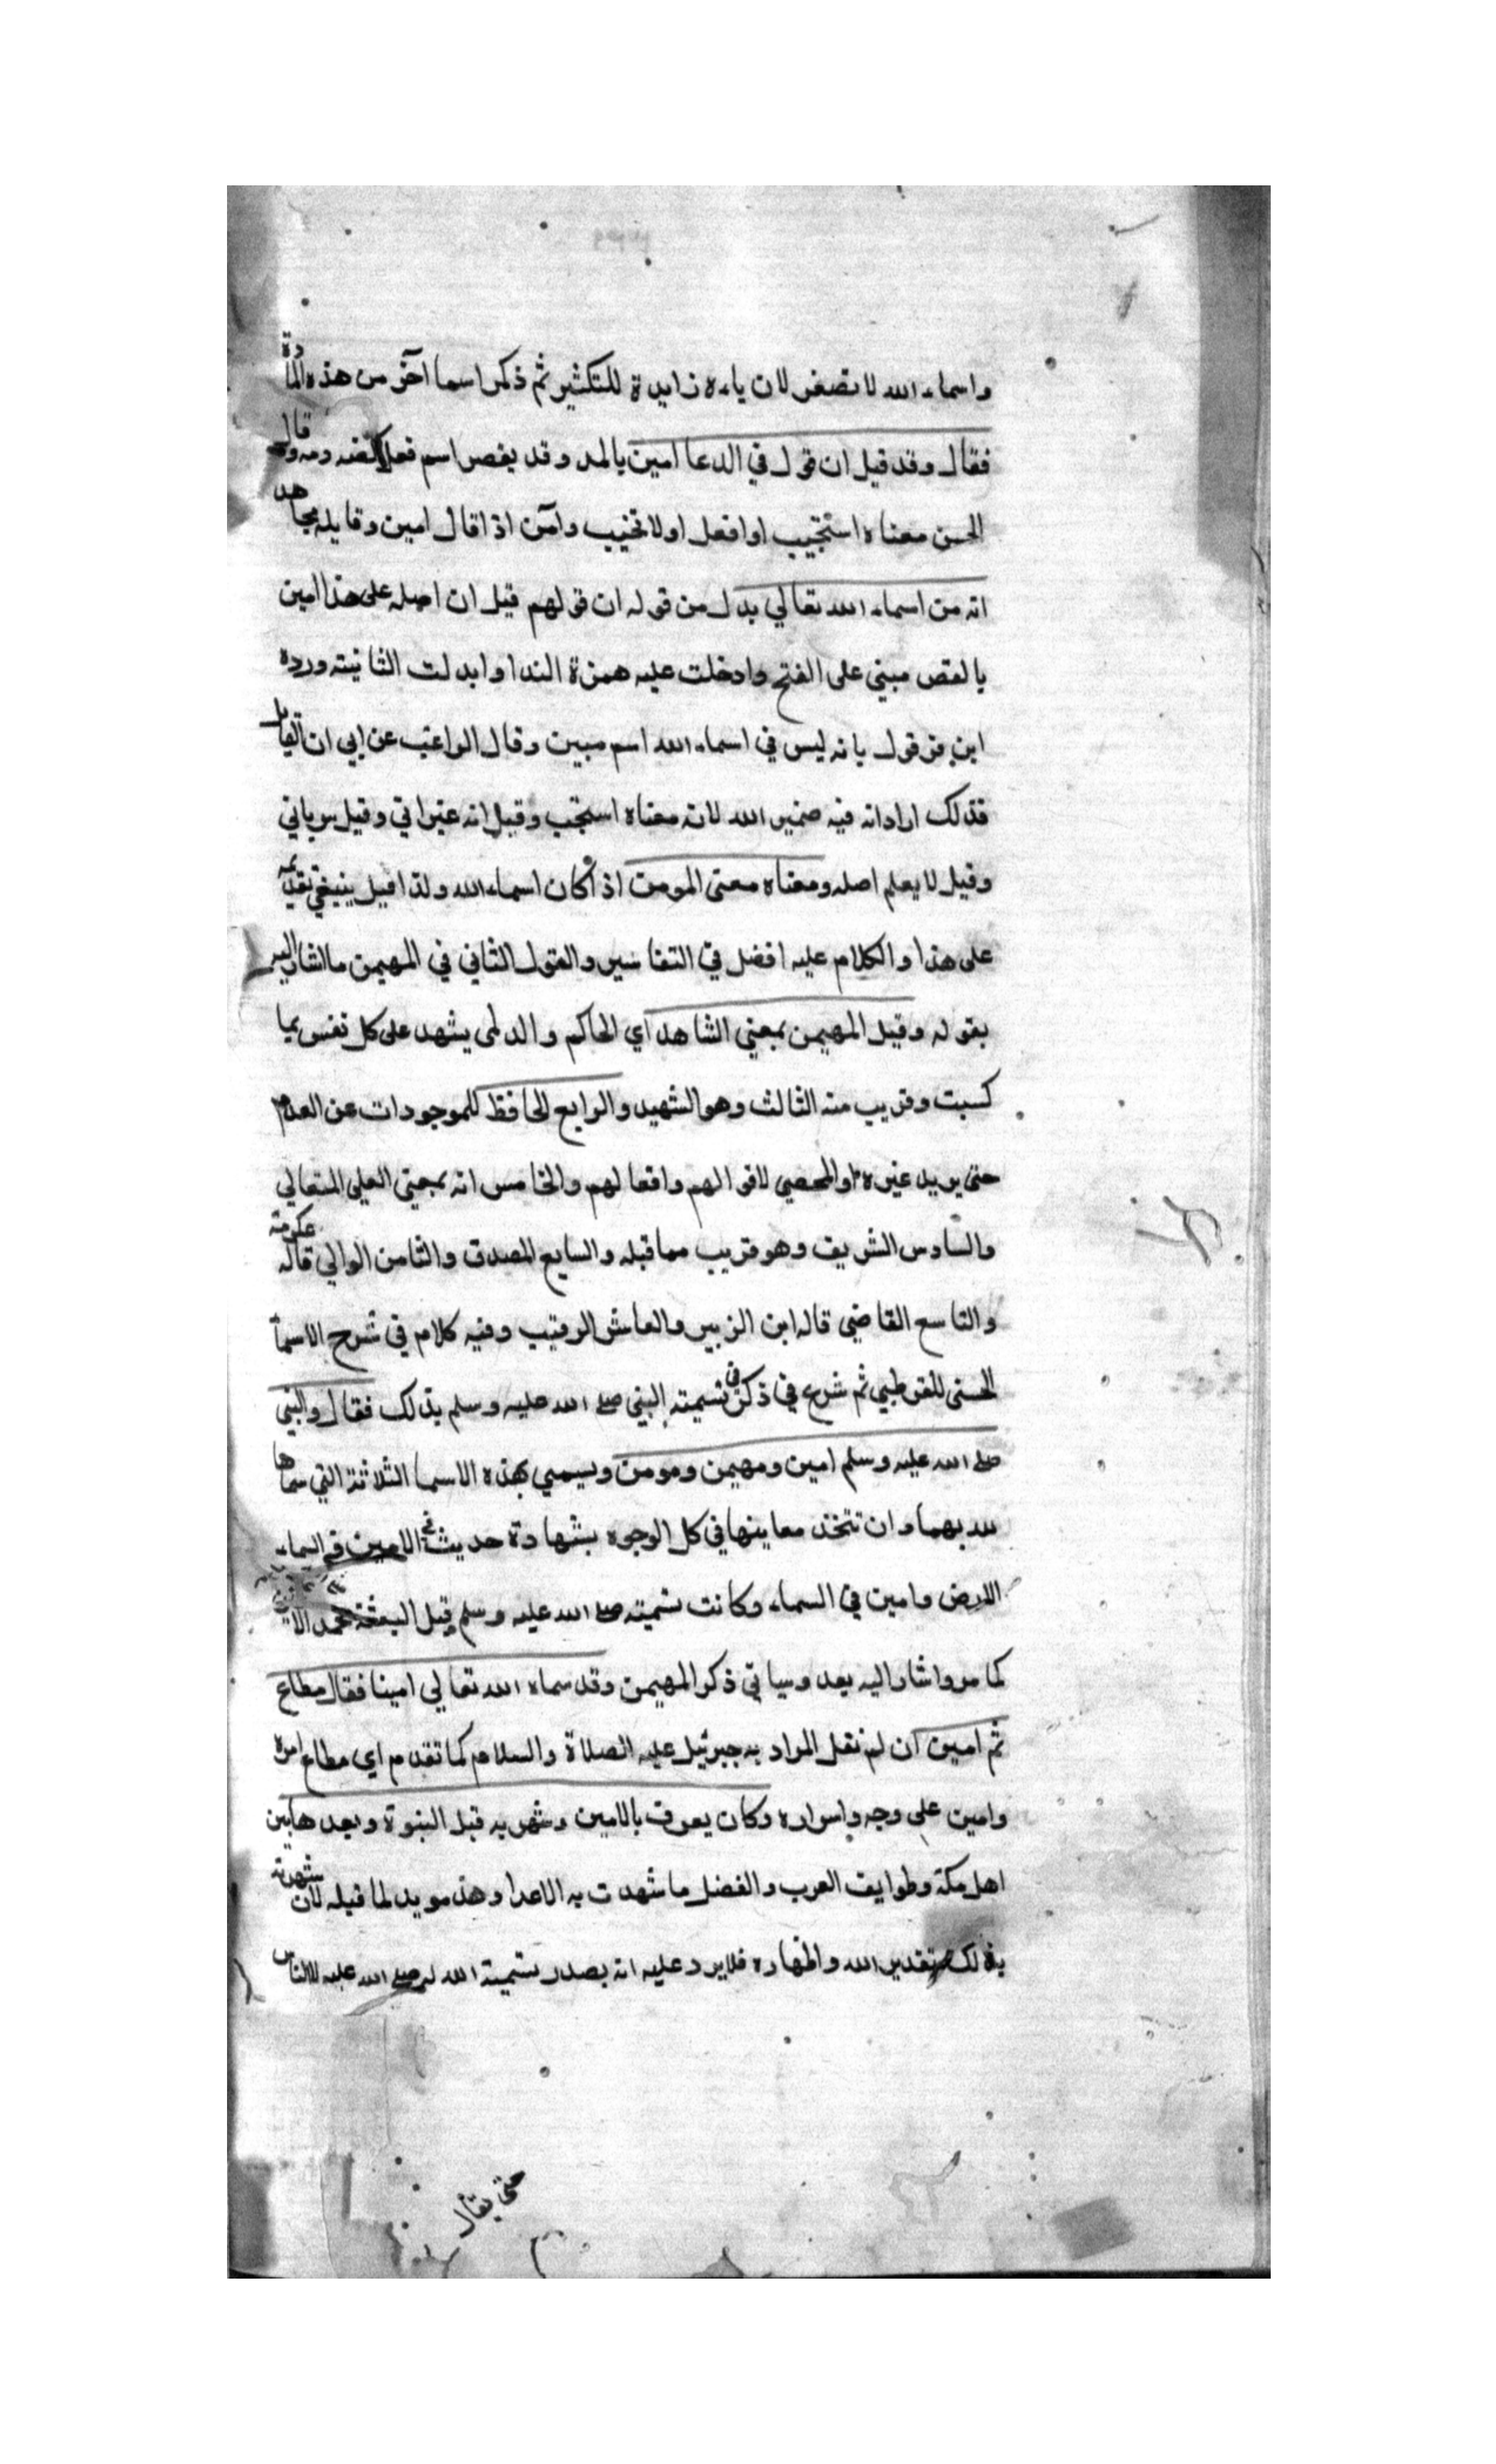 واسماء الله لا تصغر لان ياءه زايدة للتكثير ثم ذكر اسما آخر من هذه المادة
فقال وقد قيل ان قول في الدعا امين بالمد وقد يقصر اسم فعل ومه وصه قال
الحسن معناه استجيب او افعل او لا تخيب وآمن اذا قال امين وقايله مجاهد
انه من اسماء الله تعالي بدل من قوله ان قولهم قيل ان اصله على هذا امين
بالقصر مبني على الفتح وادخلت عليه همزة الندا وابدلت الثانية ورده
ابن قرقول بانه ليس في اسماء الله اسم مبين وقال الراغب عن ابي ان القايل
فذلك اراد انه فيه ضمير الله لانه معناه استجب وقيل انه عبراني وقيل سرياني
وقيل لا يعلم اصله ومعناه معنى المومن اذا كان اسماء الله ولذا قيل ينبغي تقديمه
على هذا والكلام عليه افضل في التفاسير والقول الثاني في المهيمن ما اشار اليه
بقوله وقيل المهيمن بمعني الشاهد اي الحاكم والذى يشهد على كل نفس بما
كسبت وقريب منه الثالث وهو الشهيد والرابع الحافظ للموجودات عن العدم
حتى يريد غيره او المحصي لاقوالهم وافعالهم والخامس انه بمعني العلي المتعالي
والسادس الشريف وهو قريب مما قبله والسابع المصدق والثامن الوالي قاله عكرمة
والتاسع القاضي قاله ابن الزبير والعاشر الرقيب وفيه كلام في شرح الاسما
الحسنى للقرطبي ثم شرع في ذكر في تسميته النبي صلى الله عليه وسلم بذلك فقال والنبي
صلى الله عليه وسلم امين ومهيمن ومومن ويسمي بهذه الاسما الثلاثة التي سماها
لله بهما وان تتخذ معاينها في كل الوجوه بشهادة حديث الامين في السماء
الارض وامين في السماء وكانت تسميته صلى الله عليه وسلم قبل البعثة محمد الامين
كما مر واشار اليه بعد وسياتي ذكر المهيمن وقد سماه الله تعالي امينا فقال مطاع
ثم امين ان لم نقل المراد به جبرئيل عليه الصلاة والسلام كما تقدم اي مطاع امره
وامين على وجه واسراره وكان يعرف بالامين وشهر به قبل النبوة وبعدها بين
اهل مكة وطوايف العرب والفضل ما شهدت به الاعدا وهذ مويد لما قبله لان شهرته
بذلك بتقدير الله واظهاره فلا يرد عليه انه بصدر تسمية الله له صلى الله عليه للناس
حتى يقال